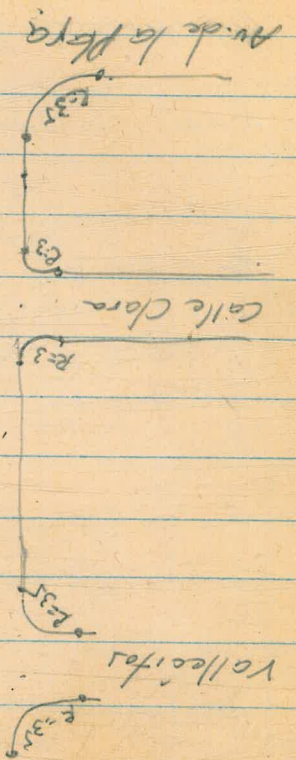 R=35
Vallecitos
R=35
R=3
Calle Clara
R=3
R=35
Av. de la Playa